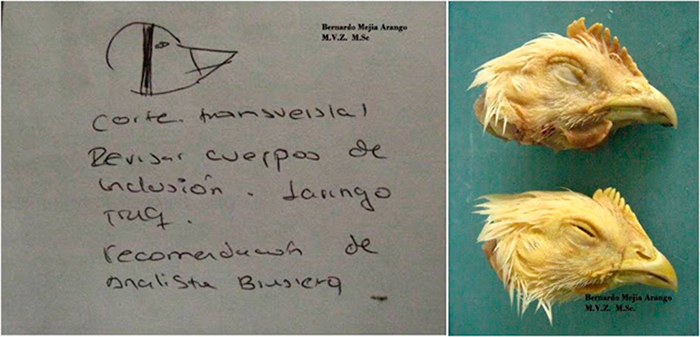 Bernardo Mejia Arango
M.V.Z. M.Sc
corte transversal
Revisar cuerpos de
inclusión. Laringo
Traq.
recomendación de
analista
Bernardo Mejia Arango
M.V.Z. M.Sc.